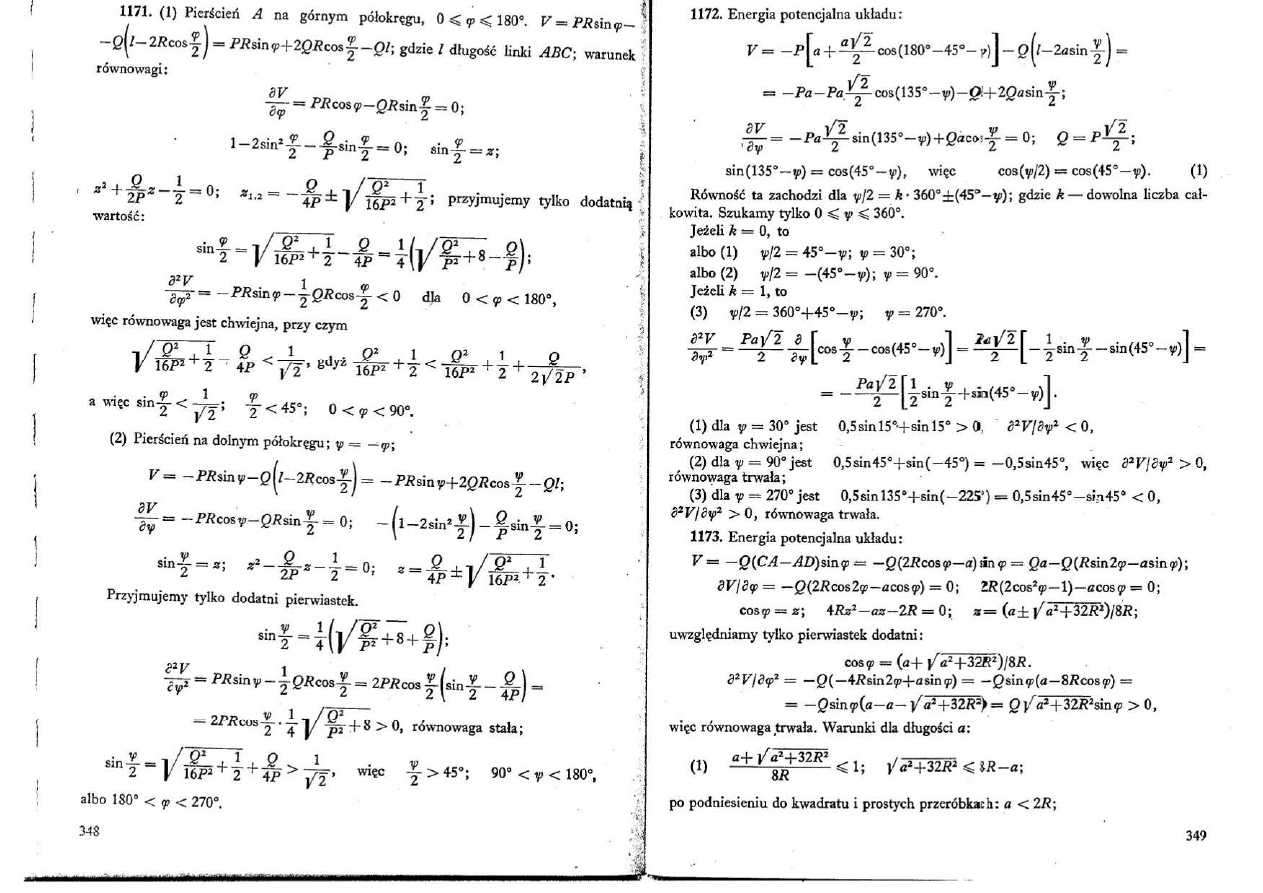 1171. (1) Pierścień A na górnym półokręgu, 0 ⩽ φ ⩽ 180°. V = PRsin φ—
—Q(l—2Rcos φ/2) = PRsin φ+2QRcos φ/2—Ql; gdzie l długość linki ABC; warunek
równowagi:
∂V/∂φ = PRcos φ—QRsin φ/2 = 0;
1—2sin² φ/2 — Q/P sin φ/2 = 0; sin φ/2 = z;
z² + Q/2P z — 1/2 = 0; z₁,₂ = — Q/4P ± √(Q²/16P² + 1/2); przyjmujemy tylko dodatnią
wartość:
sin φ/2 = √(Q²/16P² + 1/2) — Q/4P = 1/4(√(Q²/P² + 8) — Q/P);
∂²V/∂φ² = —PRsin φ — 1/2 QRcos φ/2 < 0 dla 0 < φ < 180°,
więc równowaga jest chwiejna, przy czym
√(Q²/16P² + 1/2) - Q/4P < 1/√2, gdyż Q²/16P² + 1/2 < Q²/16P² + 1/2 + Q/2√2P,
a więc sin φ/2 < 1/√2; φ/2 < 45°; 0 < φ < 90°.
(2) Pierścień na dolnym półokręgu; ψ = —φ;
V = —PRsin ψ—Q(l—2Rcos ψ/2) = —PRsin ψ+2QRcos ψ/2 — Ql;
∂V/∂ψ = —PRcos ψ—QRsin ψ/2 = 0; —(1—2sin² ψ/2) — Q/P sin ψ/2 = 0;
sin ψ/2 = z; z² — Q/2P z — 1/2 = 0; z = Q/4P ± √(Q²/16P² + 1/2).
Przyjmujemy tylko dodatni pierwiastek.
sin ψ/2 = 1/4(√(Q²/P² + 8) + Q/P);
∂²V/∂ψ² = PRsin ψ — 1/2 QRcos ψ/2 = 2PRcos ψ/2 (sin ψ/2 — Q/4P) =
= 2PRcos ψ/2 · 1/4 √(Q²/P² + 8) > 0, równowaga stała;
sin ψ/2 = √(Q²/16P² + 1/2) + Q/4P > 1/√2, więc ψ/2 > 45°; 90° < ψ < 180°,
albo 180° < φ < 270°.
348
1172. Energia potencjalna układu:
V = —P[a + a√2/2 cos(180°—45°— ψ)] — Q(l—2asin ψ/2) =
= —Pa—Pa √2/2 cos(135°—ψ)—Ql+2Qasin ψ/2;
∂V/∂ψ = —Pa √2/2 sin(135°—ψ)+Qacos ψ/2 = 0; Q = P √2/2;
sin(135°—ψ) = cos(45°—ψ), więc cos(ψ/2) = cos(45°—ψ). (1)
Równość ta zachodzi dla ψ/2 = k· 360°±(45°—ψ); gdzie k — dowolna liczba cał-
kowita. Szukamy tylko 0 ⩽ ψ ⩽ 360°.
Jeżeli k = 0, to
albo (1) ψ/2 = 45°—ψ; ψ = 30°;
albo (2) ψ/2 = —(45°—ψ); ψ = 90°.
Jeżeli k = 1, to
(3) ψ/2 = 360°+45°—ψ; ψ = 270°.
∂²V/∂ψ² = Pa√2/2 ∂/∂ψ [cos ψ/2 — cos(45°—ψ)] = Pa√2/2 [— 1/2 sin ψ/2 — sin(45°—ψ)] =
= — Pa√2/2 [1/2 sin ψ/2 + sin(45°—ψ)].
(1) dla ψ = 30° jest 0,5sin15°+sin15° > 0, ∂²V/∂ψ² < 0,
równowaga chwiejna;
(2) dla ψ = 90° jest 0,5sin45°+sin(—45°) = —0,5sin45°, więc ∂²V/∂ψ² > 0,
równowaga trwała;
(3) dla ψ = 270° jest 0,5sin135°+sin(—225°) = 0,5sin45°—sin45° < 0,
∂²V/∂ψ² > 0, równowaga trwała.
1173. Energia potencjalna układu:
V = —Q(CA—AD)sin φ = —Q(2Rcos φ—a) sin φ = Qa—Q(Rsin2φ—asin φ);
∂V/∂φ = —Q(2Rcos2φ—acos φ) = 0; 2R(2cos²φ—1)—acos φ = 0;
cos φ = z; 4Rz²—az—2R = 0; z = (a±√(a²+32R²))/8R;
uwzględniamy tylko pierwiastek dodatni:
cos φ = (a+√(a²+32R²))/8R.
∂²V/∂φ² = —Q(—4Rsin2φ+asin φ) = —Qsin φ(a—8Rcos φ) =
= —Qsin φ(a—a—√(a²+32R²)) = Q√(a²+32R²)sin φ > 0,
więc równowaga trwała. Warunki dla długości a:
(1) (a+√(a²+32R²))/8R ⩽ 1; √(a²+32R²) ⩽ 8R—a;
po podniesieniu do kwadratu i prostych przeróbkach: a < 2R;
349